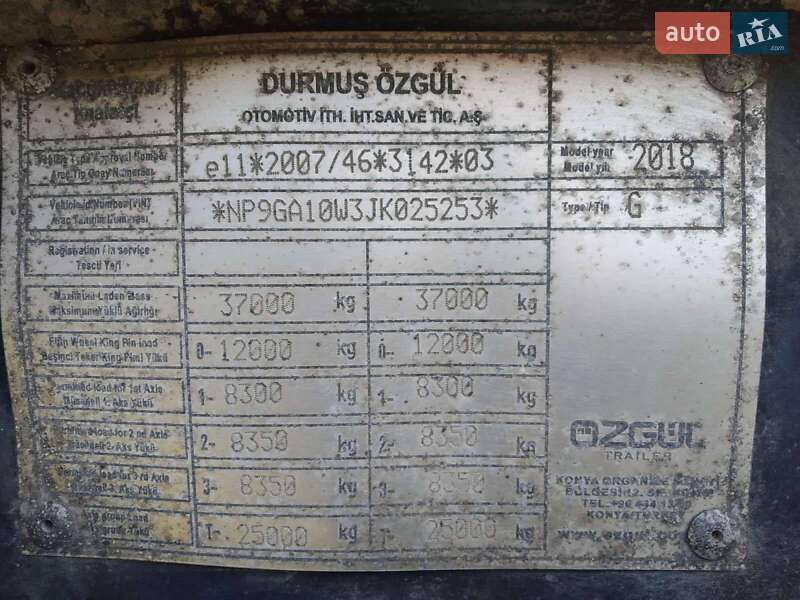 auto RIA .com
DURMUŞ ÖZGÜL
OTOMOTİV İTH. İHT.SAN.VE TİC. A.Ş.
Type Approval Number
Araç Tip Onay Numarası
e11*2007/46*3142*03
Model year
Model yılı
2018
Vehicle Id Number(VIN)
Araç Tanıtım Numarası
*NP9GA10W3JK025253*
Type / Tip G
Registration / in service
Tescil Yeri
Maximum Laden Mass
Maksimum Yüklü Ağırlığı
37000 kg 37000 kg
Fifth Wheel King Pin load
Beşinci Teker King Pimi Yükü
0- 12000 kg 0- 12000 kg
load for 1st Axle
1. Aks Yükü
1- 8300 kg 1- 8300 kg
load for 2 nd Axle
2. Aks Yükü
2- 8350 kg 2- 8350 kg
for 3 rd Axle
3. Aks Yükü
3- 8350 kg 3- 8350 kg
Load
Yükü
T- 25000 kg T- 25000 kg
ÖZGÜL
TRAILER
KONYA ORGANİZE
BÖLGESİ 12.
TEL
KONYA/TÜRKEY
www.ozgul.co